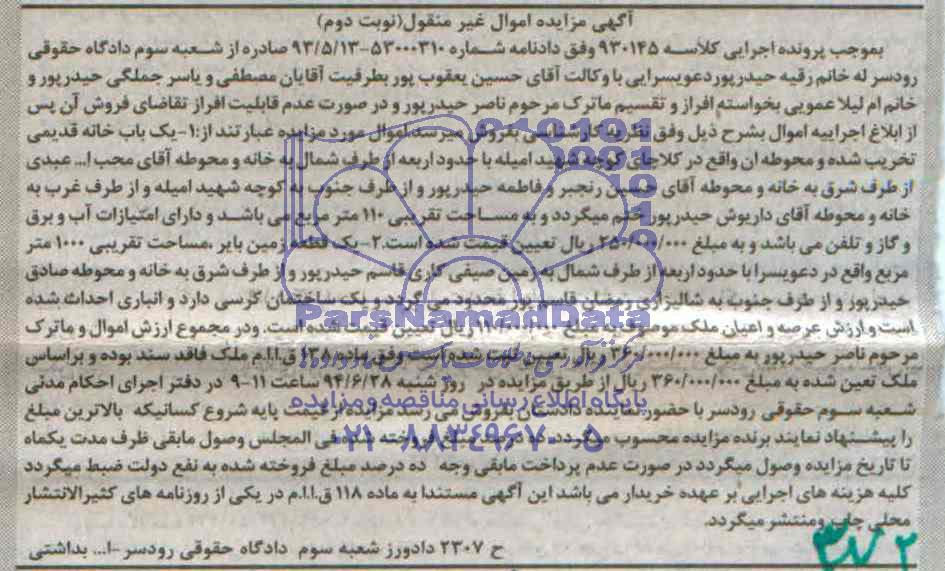 آگهی مزایده اموال غیر منقول(نوبت دوم)
بموجب پرونده اجرایی کلاسه ۹۳۰۱۴۵ وفق دادنامه شماره ۵۳۰۰۰۳۱۰-۹۳/۵/۱۳ صادره از شعبه سوم دادگاه حقوقی
رودسر له خانم رقیه حیدرپور دعویسرایی با وکالت آقای حسین یعقوب پور بطرفیت آقایان مصطفی و یاسر جملگی حیدرپور و
خانم ام لیلا عمویی بخواسته افراز و تقسیم ماترک مرحوم ناصر حیدرپور و در صورت عدم قابلیت افراز تقاضای فروش آن پس
از ابلاغ اجراییه اموال بشرح ذیل وفق نظریه کارشناسی بفروش میرسد.اموال مورد مزایده عبارتند از:۱-یک باب خانه قدیمی
تخریب شده و محوطه ان واقع در کلاچای کوچه شهید امیله با حدود اربعه از طرف شمال به خانه و محوطه آقای محب ا... عبدی
از طرف شرق به خانه و محوطه آقای حسین رنجبر و فاطمه حیدرپور و از طرف جنوب به کوچه شهید امیله و از طرف غرب به
خانه و محوطه آقای داریوش حیدرپور ختم میگردد و به مساحت تقریبی ۱۱۰ متر مربع می باشد و دارای امتیازات آب و برق
و گاز و تلفن می باشد و به مبلغ ۲۵۰/۰۰۰/۰۰۰ ریال تعیین قیمت شده است.۲-یک قطعه زمین بایر ،مساحت تقریبی ۱۰۰۰ متر
مربع واقع در دعویسرا با حدود اربعه از طرف شمال به زمین صیفی کاری قاسم حیدرپور و از طرف شرق به خانه و محوطه صادق
حیدرپور و از طرف جنوب به شالیزاری رمضان قاسم پور محدود می گردد و یک ساختمان کرسی دارد و انباری احداث شده
است و ارزش عرصه و اعیان ملک موصوف به مبلغ ۱۱۰/۰۰۰/۰۰۰ ریال تعیین قیمت شده است. ودر مجموع ارزش اموال و ماترک
مرحوم ناصر حیدرپور به مبلغ ۳۶۰/۰۰۰/۰۰۰ ریال تعیین قیمت شده است وفق ماده ۱۳۸ ق.ا.ا.م ملک فاقد سند بوده و براساس
ملک تعین شده به مبلغ ۳۶۰/۰۰۰/۰۰۰ ریال از طریق مزایده در روز شنبه ۹۴/۶/۲۸ ساعت ۱۱-۹ در دفتر اجرای احکام مدنی
شعبه سوم حقوقی رودسر با حضور نماینده دادستان بفروش می رسد مزایده از قیمت پایه شروع کسانیکه بالاترین مبلغ
را پیشنهاد نمایند برنده مزایده محسوب میگردد.ده درصد مبلغ فروخته شده فی المجلس وصول مابقی ظرف مدت یکماه
تا تاریخ مزایده وصول میگردد در صورت عدم پرداخت مابقی وجه ده درصد مبلغ فروخته شده به نفع دولت ضبط میگردد
کلیه هزینه های اجرایی بر عهده خریدار می باشد این آگهی مستندا به ماده ۱۱۸ ق.ا.ا.م در یکی از روزنامه های کثیرالانتشار
محلی چاپ ومنتشر میگردد.
ح ۲۳۰۷ دادورز شعبه سوم دادگاه حقوقی رودسر-ا... بداشتی
ParsNamadData
پایگاه اطلاع رسانی مناقصه و مزایده
۰۲۱-۸۸۳۴۹۶۷۰-۵